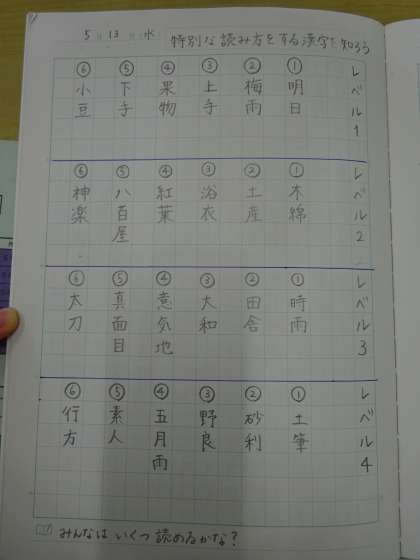 5月13日(水) 特別な読み方をする漢字を知ろう
レベル1
①明日
②梅雨
③上手
④果物
⑤下手
⑥小豆
レベル2
①木綿
②土産
③浴衣
④紅葉
⑤八百屋
⑥神楽
レベル3
①時雨
②田舎
③大和
④意気地
⑤真面目
⑥太刀
レベル4
①土筆
②砂利
③野良
④五月雨
⑤素人
⑥行方
みんなはいくつ読めるかな?